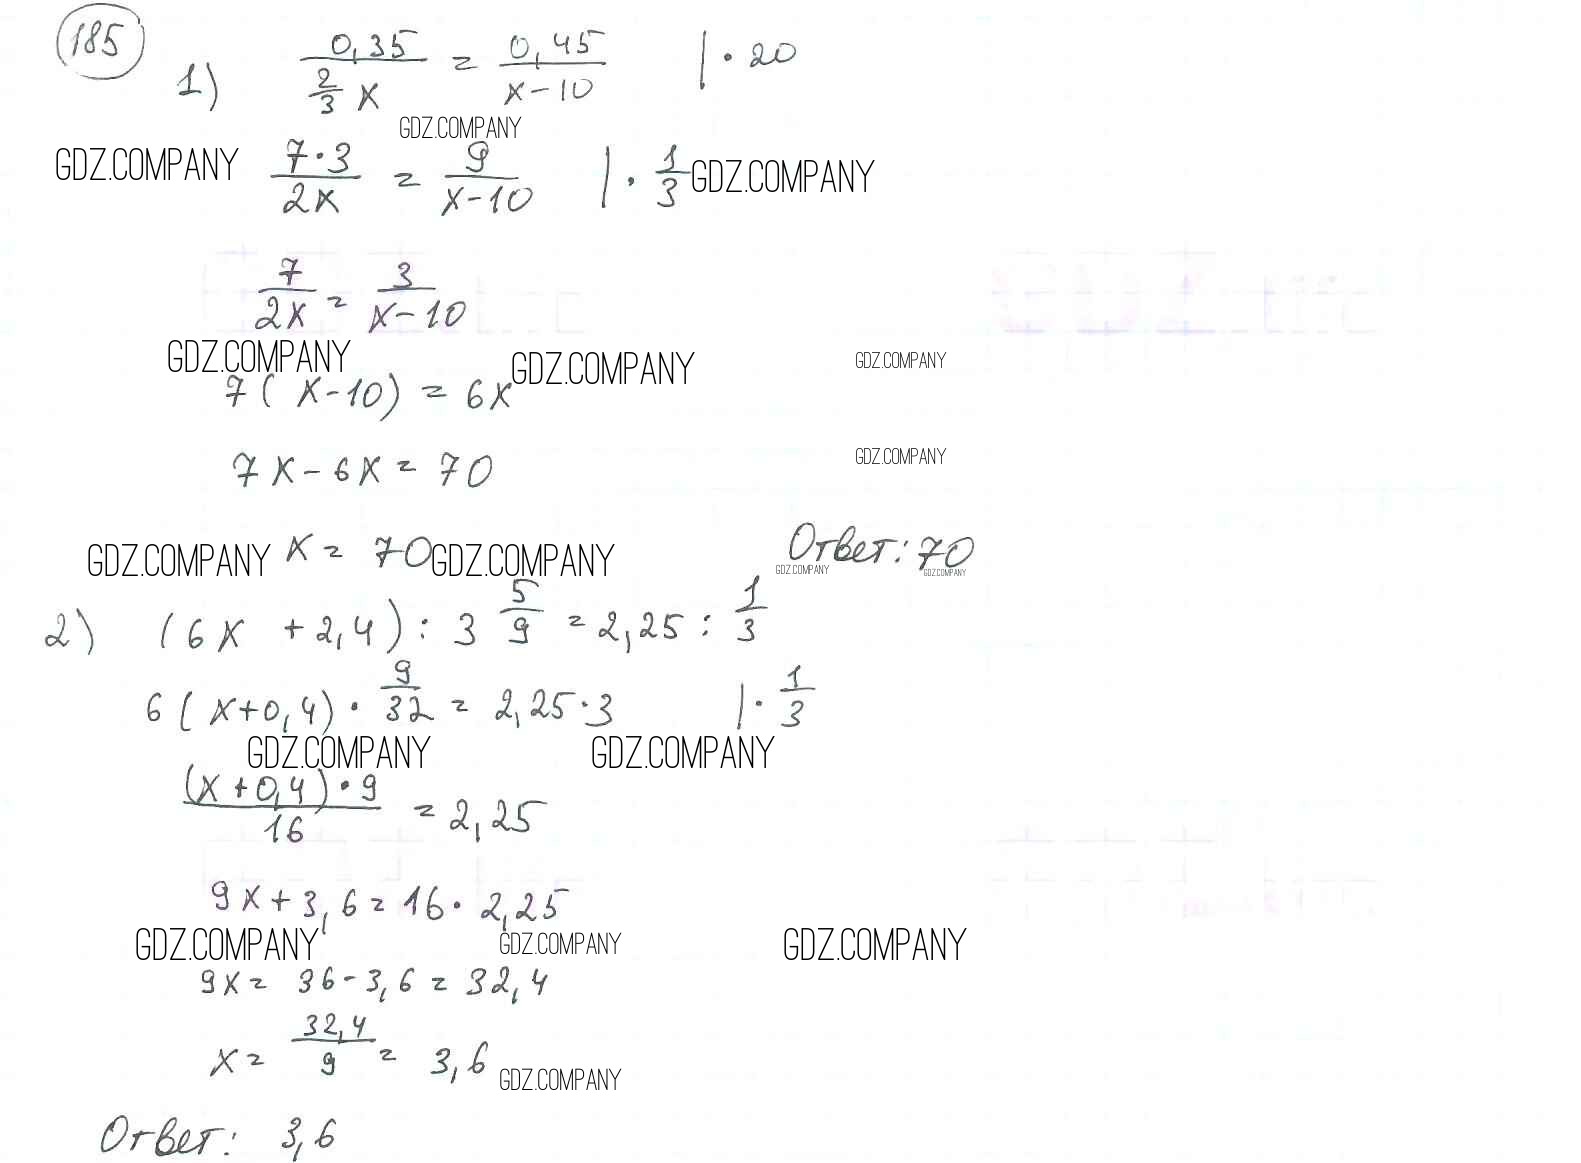 185
1) 0,35 / (2/3 x) = 0,45 / (x-10) | · 20
GDZ.COMPANY
GDZ.COMPANY 7·3 / 2x = 9 / (x-10) | · 1/3 GDZ.COMPANY
7 / 2x = 3 / (x-10)
GDZ.COMPANY GDZ.COMPANY GDZ.COMPANY
7(x-10) = 6x
7x-6x = 70 GDZ.COMPANY
GDZ.COMPANY x = 70 GDZ.COMPANY Ответ: 70
GDZ.COMPANY GDZ.COMPANY
2) (6x + 2,4) : 3 5/9 = 2,25 : 1/3
6(x+0,4) · 9/32 = 2,25·3 | · 1/3
GDZ.COMPANY GDZ.COMPANY
(x+0,4)·9 / 16 = 2,25
9x+3,6 = 16·2,25
GDZ.COMPANY GDZ.COMPANY GDZ.COMPANY
9x = 36-3,6 = 32,4
x = 32,4 / 9 = 3,6
GDZ.COMPANY
Ответ: 3,6